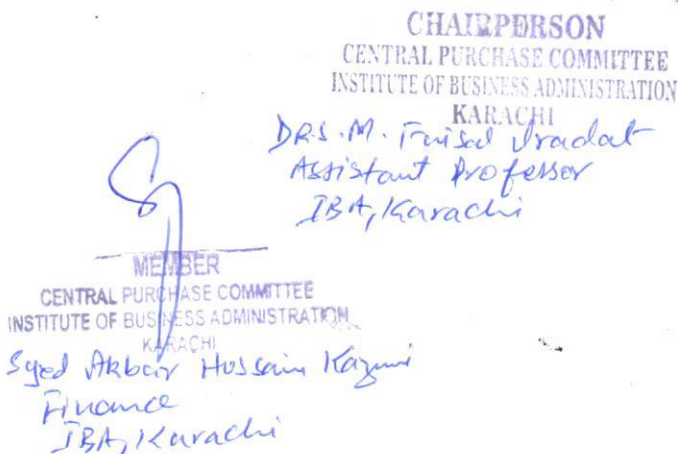 CHAIRPERSON
CENTRAL PURCHASE COMMITTEE
INSTITUTE OF BUSINESS ADMINISTRATION
KARACHI
DR.S.M. Faisal Iradat
Assistant Professor
IBA, Karachi
MEMBER
CENTRAL PURCHASE COMMITTEE
INSTITUTE OF BUSINESS ADMINISTRATION
KARACHI
Syed Akbar Hossain Kazmi
Finance
IBA, Karachi